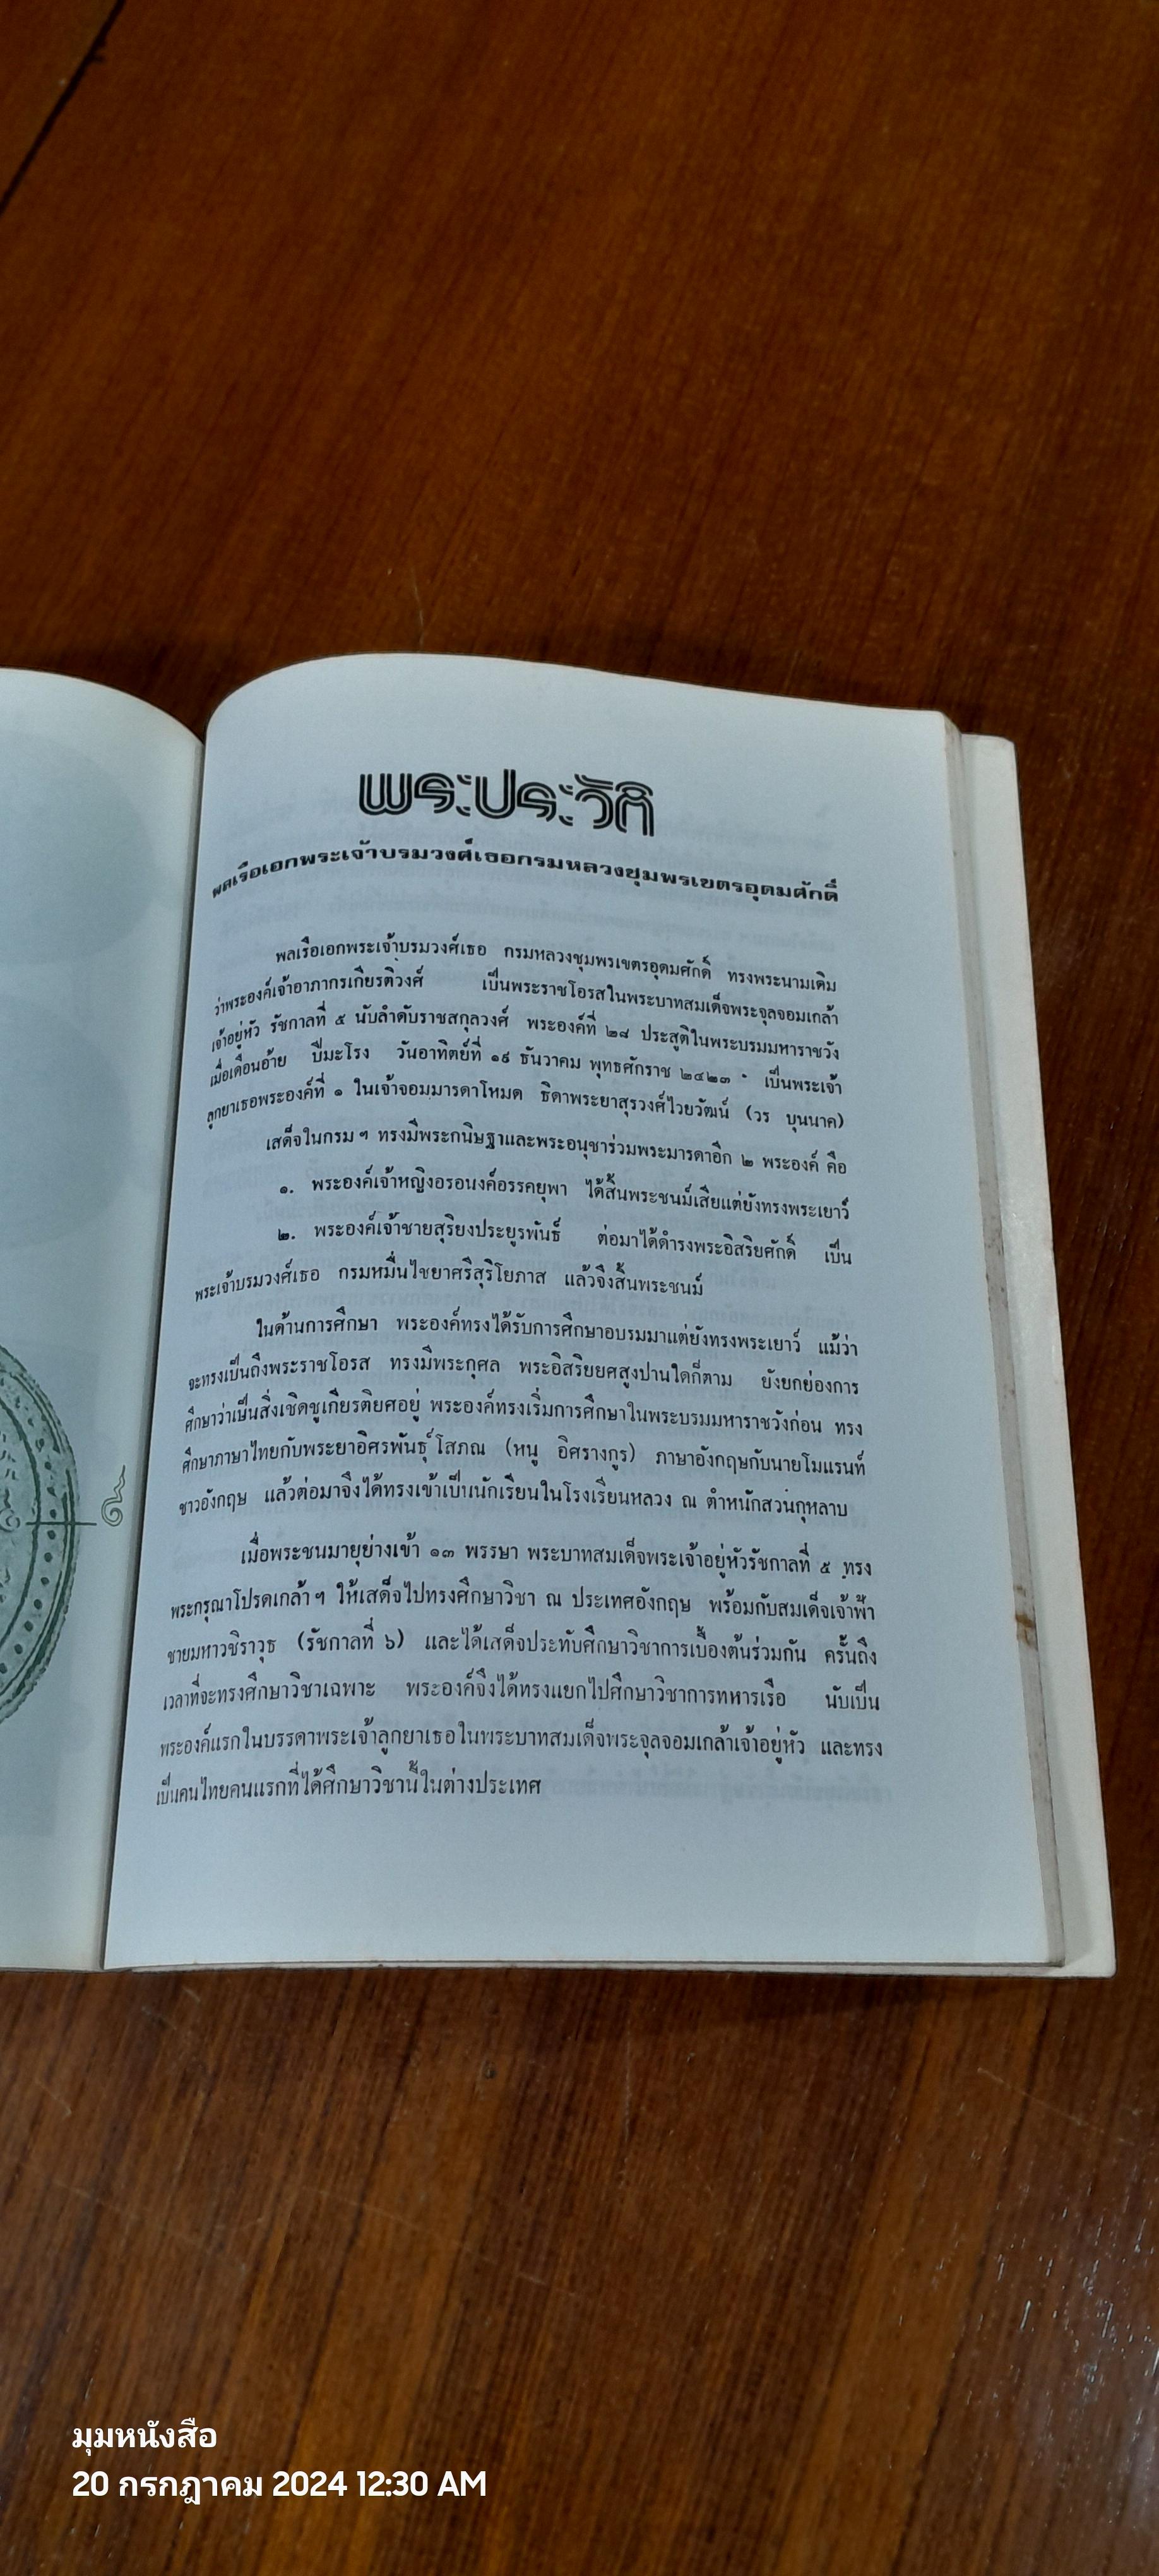 พระประวัติ
พลเรือเอกพระเจ้าบรมวงศ์เธอกรมหลวงชุมพรเขตรอุดมศักดิ์
พลเรือเอกพระเจ้าบรมวงศ์เธอ กรมหลวงชุมพรเขตรอุดมศักดิ์ ทรงพระนามเดิม
ว่าพระองค์เจ้าอาภากรเกียรติวงศ์ เป็นพระราชโอรสในพระบาทสมเด็จพระจุลจอมเกล้า
เจ้าอยู่หัว รัชกาลที่ ๕ นับลำดับราชสกุลวงศ์ พระองค์ที่ ๒๘ ประสูติในพระบรมมหาราชวัง
เมื่อเดือนอ้าย ปีมะโรง วันอาทิตย์ที่ ๑๙ ธันวาคม พุทธศักราช ๒๔๒๓ เป็นพระเจ้า
ลูกยาเธอพระองค์ที่ ๑ ในเจ้าจอมมารดาโหมด ธิดาพระยาสุรวงศ์ไวยวัฒน์ (วร บุนนาค)
เสด็จในกรมฯ ทรงมีพระกนิษฐาและพระอนุชาร่วมพระมารดาอีก ๒ พระองค์ คือ
๑. พระองค์เจ้าหญิงอรอนงค์อรรคยุพา ได้สิ้นพระชนม์เสียแต่ยังทรงพระเยาว์
๒. พระองค์เจ้าชายสุริยงประยูรพันธ์ ต่อมาได้ดำรงพระอิสริยศักดิ์ เป็น
พระเจ้าบรมวงศ์เธอ กรมหมื่นไชยาศรีสุริโยภาส แล้วจึงสิ้นพระชนม์
ในด้านการศึกษา พระองค์ทรงได้รับการศึกษาอบรมมาแต่ยังทรงพระเยาว์ แม้ว่า
จะทรงเป็นถึงพระราชโอรส ทรงมีพระกุศล พระอิสริยยศสูงปานใดก็ตาม ยังยกย่องการ
ศึกษาว่าเป็นสิ่งเชิดชูเกียรติยศอยู่ พระองค์ทรงเริ่มการศึกษาในพระบรมมหาราชวังก่อน ทรง
ศึกษาภาษาไทยกับพระยาอิศรพันธุ์โสภณ (หนู อิศรางกูร) ภาษาอังกฤษกับนายโมแรนท์
ชาวอังกฤษ แล้วต่อมาจึงได้ทรงเข้าเป็นนักเรียนในโรงเรียนหลวง ณ ตำหนักสวนกุหลาบ
เมื่อพระชนมายุย่างเข้า ๑๓ พรรษา พระบาทสมเด็จพระเจ้าอยู่หัวรัชกาลที่ ๕ ทรง
พระกรุณาโปรดเกล้าฯ ให้เสด็จไปทรงศึกษาวิชา ณ ประเทศอังกฤษ พร้อมกับสมเด็จเจ้าฟ้า
ชายมหาวชิราวุธ (รัชกาลที่ ๖) และได้เสด็จประทับศึกษาวิชาการเบื้องต้นร่วมกัน ครั้นถึง
เวลาที่จะทรงศึกษาวิชาเฉพาะ พระองค์จึงได้ทรงแยกไปศึกษาวิชาการทหารเรือ นับเป็น
พระองค์แรกในบรรดาพระเจ้าลูกยาเธอในพระบาทสมเด็จพระจุลจอมเกล้าเจ้าอยู่หัว และทรง
เป็นคนไทยคนแรกที่ได้ศึกษาวิชานี้ในต่างประเทศ
มุมหนังสือ
20 กรกฎาคม 2024 12:30 AM